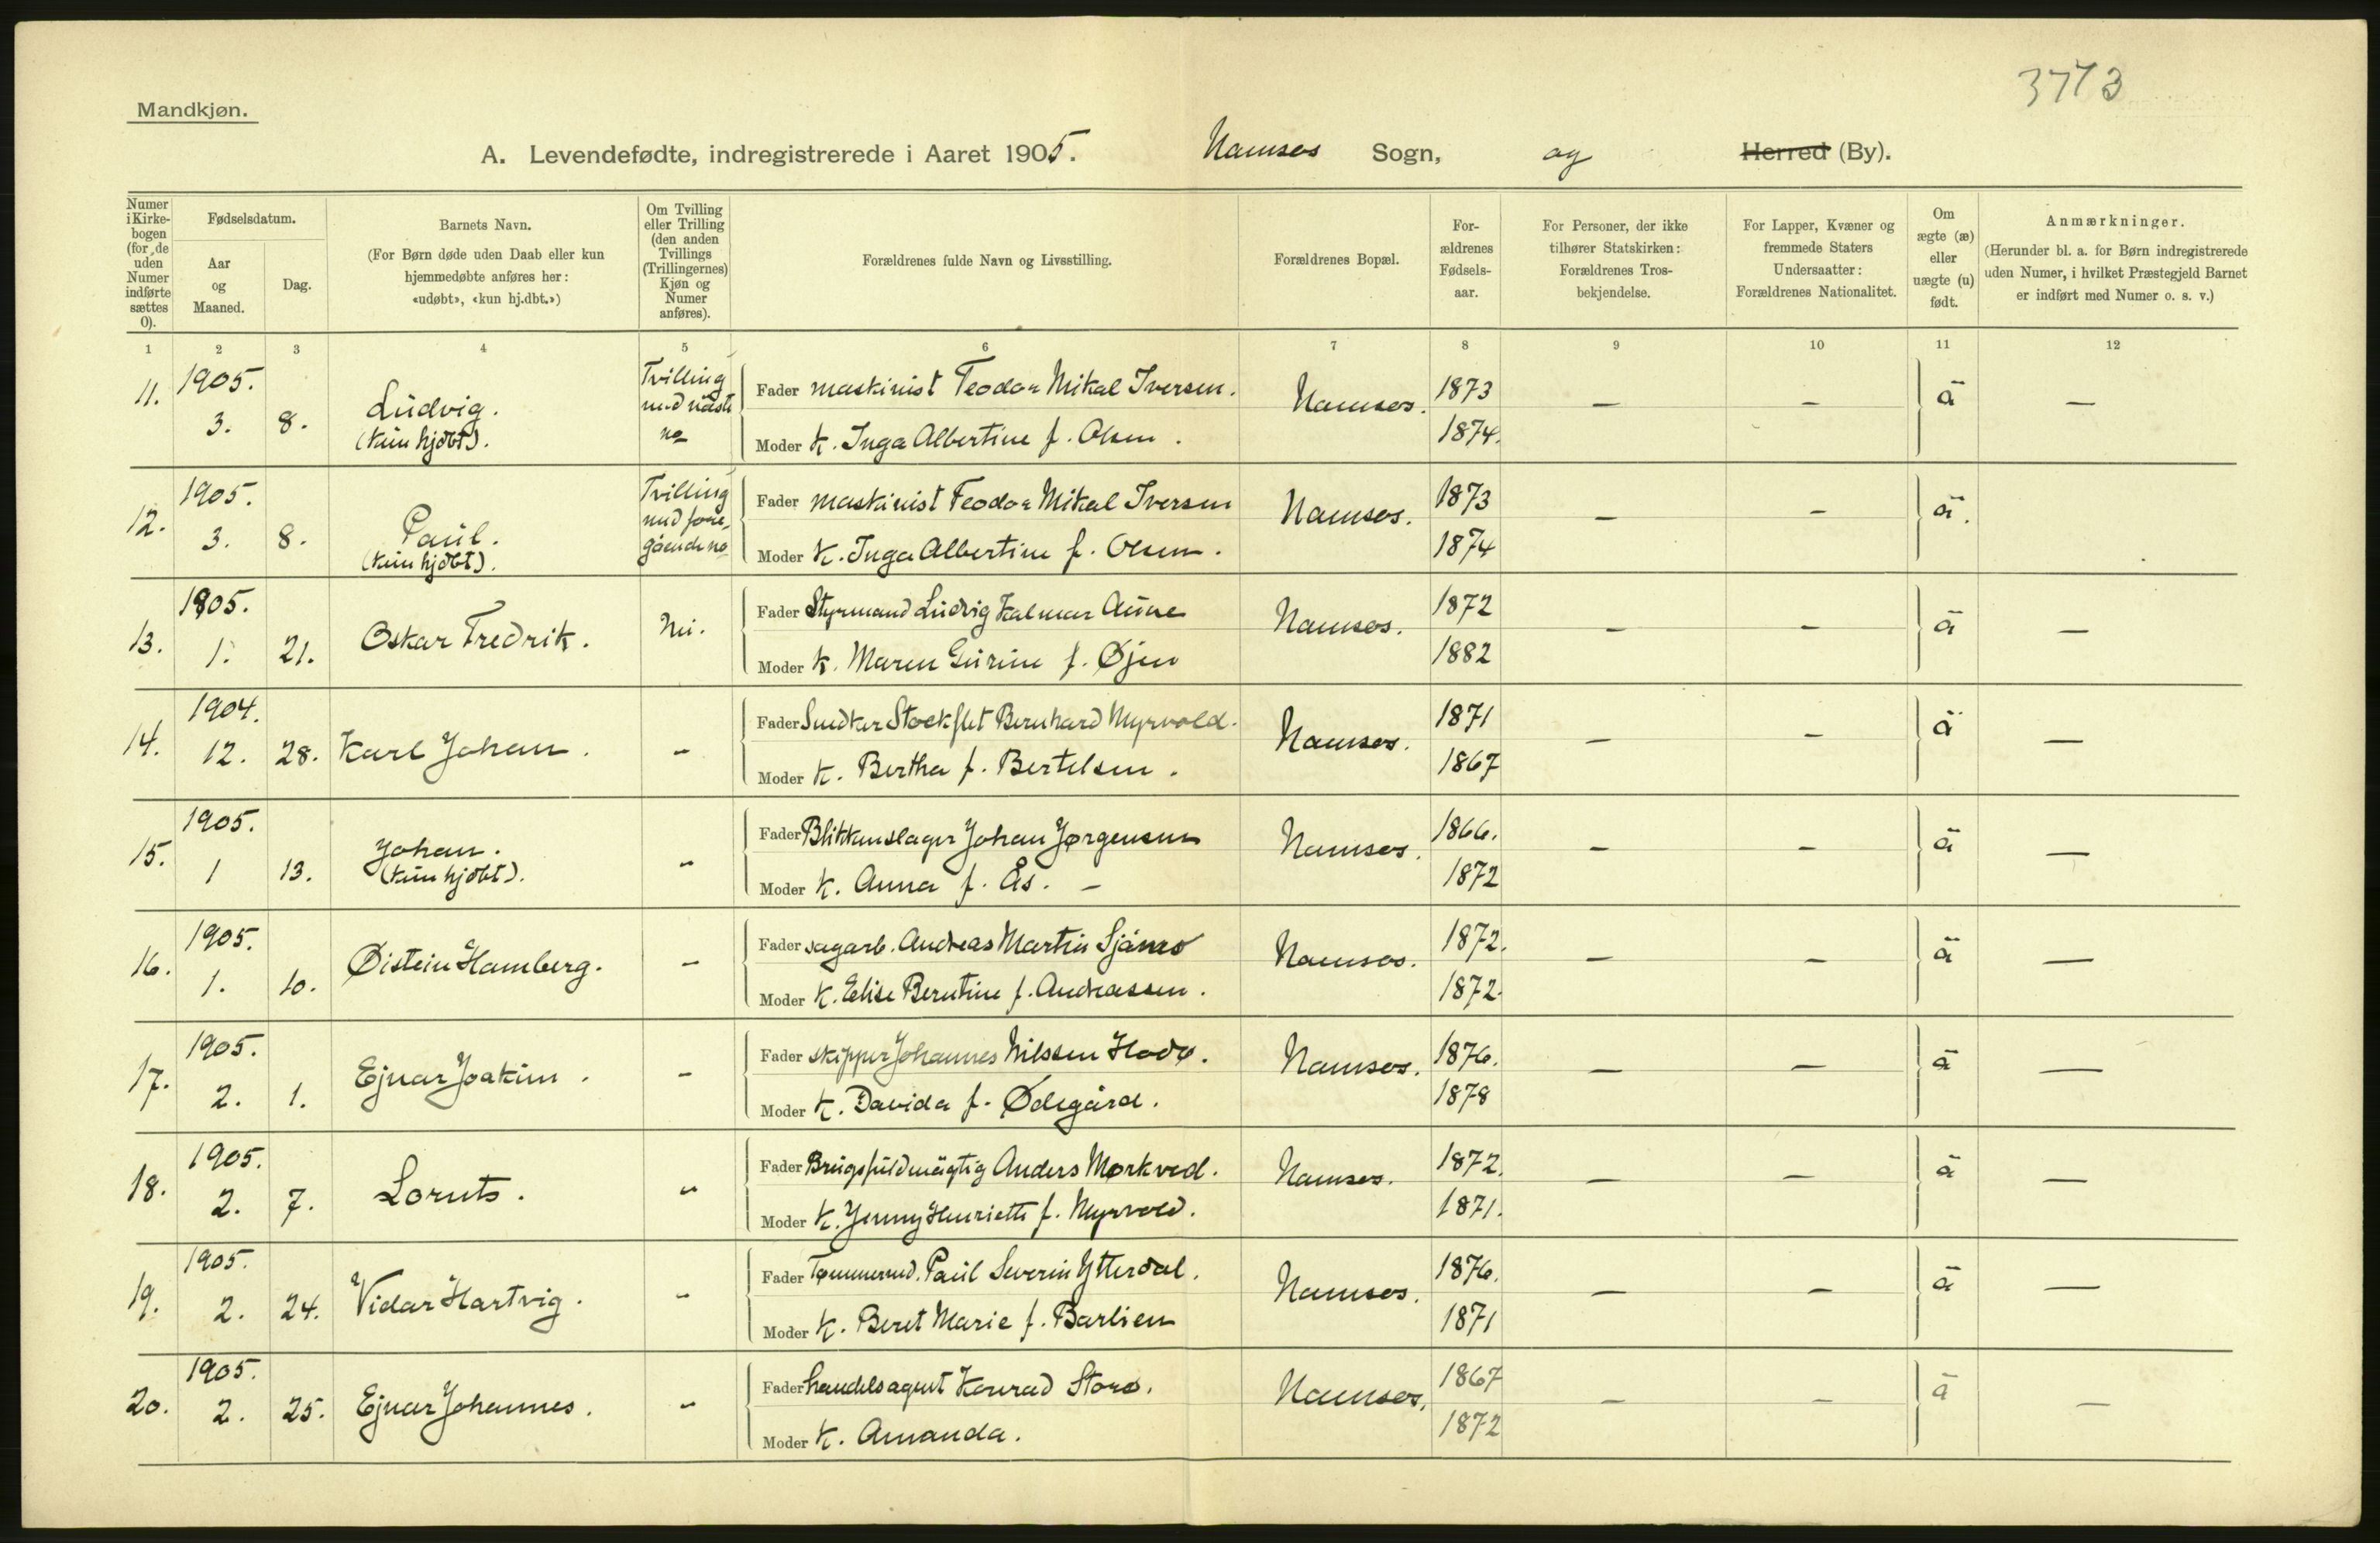 3773
Mandkjøn.
A. Levendefødte, indregistrerede i Aaret 1905. Namsos Sogn, og Herred (By).
Numer i Kirkebogen (for de uden Numer indførte sættes 0).
Fødselsdatum.
Aar og Maaned.
Dag.
Barnets Navn.
(For Børn døde uden Daab eller kun hjemmedøbte anføres her: «udøbt», «kun hj.dbt.»)
Om Tvilling eller Trilling (den anden Tvillings (Trillingernes) Kjøn og Numer anføres).
Forældrenes fulde Navn og Livsstilling.
Forældrenes Bopæl.
Forældrenes Fødselsaar.
For Personer, der ikke tilhører Statskirken: Forældrenes Trosbekjendelse.
For Lapper, Kvæner og fremmede Staters Undersaatter: Forældrenes Nationalitet.
Om ægte (æ) eller uægte (u) født.
Anmærkninger.
(Herunder bl. a. for Børn indregistrerede uden Numer, i hvilket Præstegjeld Barnet er indført med Numer o. s. v.)
1 2 3 4 5 6 7 8 9 10 11 12
11. 1905. 3. 8. Ludvig. (kun hjdbt). Tvilling med næste no
Fader maskinist Teodor Mikal Iversen. Namsos. 1873 – – ä –
Moder K. Inga Albertine f. Olsen. 1874.
12. 1905. 3. 8. Paul. (kun hjdbt). Tvilling med foregående no
Fader maskinist Teodor Mikal Iversen Namsos. 1873 – – ä.
Moder K. Inga Albertine f. Olsen. 1874
13. 1905. 1. 21. Oskar Fredrik. Nei.
Fader Styrmand Ludvig Halmar Aune Namsos. 1872 – – ä –
Moder K. Maren Gurine f. Øjen 1882
14. 1904. 12. 28. Karl Johan. –
Fader Snedker Stockflet Bernhard Myrvold. Namsos. 1871 – – ä –
Moder K. Bertha f. Bertelsen. 1867
15. 1905. 1 13. Johan. (kun hjdbt). –
Fader Blikkenslager Johan Jørgensen Namsos. 1866. – – ä –
Moder K. Anna f. Ås. – 1872
16. 1905. 1. 10. Øistein Hamberg. –
Fader sagarb. Andreas Martin Sjånes Namsos. 1872. – – ä –
Moder K. Elise Berntine f. Andreassen. 1872.
17. 1905. 2. 1. Ejnar Joakim. –
Fader skipper Johannes Nilssen Hodø. Namsos. 1876. – – ä –
Moder K. Davida f. Ødegård. 1878
18. 1905. 2. 7. Lornts. –
Fader Brugsfuldmägtig Anders Mørkved. Namsos. 1872. – – ä –
Moder K. Jenny Henriette f. Myrvold. 1871.
19. 1905. 2. 24. Vidar Hartvig. –
Fader Tømmermd. Paul Severin Ytterdal. Namsos. 1876. – – ä –
Moder K. Beret Marie f. Barlien 1871
20. 1905. 2. 25. Ejnar Johannes. –
Fader handelsagent Konrad Storø. Namsos. 1867 – – ä –
Moder K. Amanda. 1872